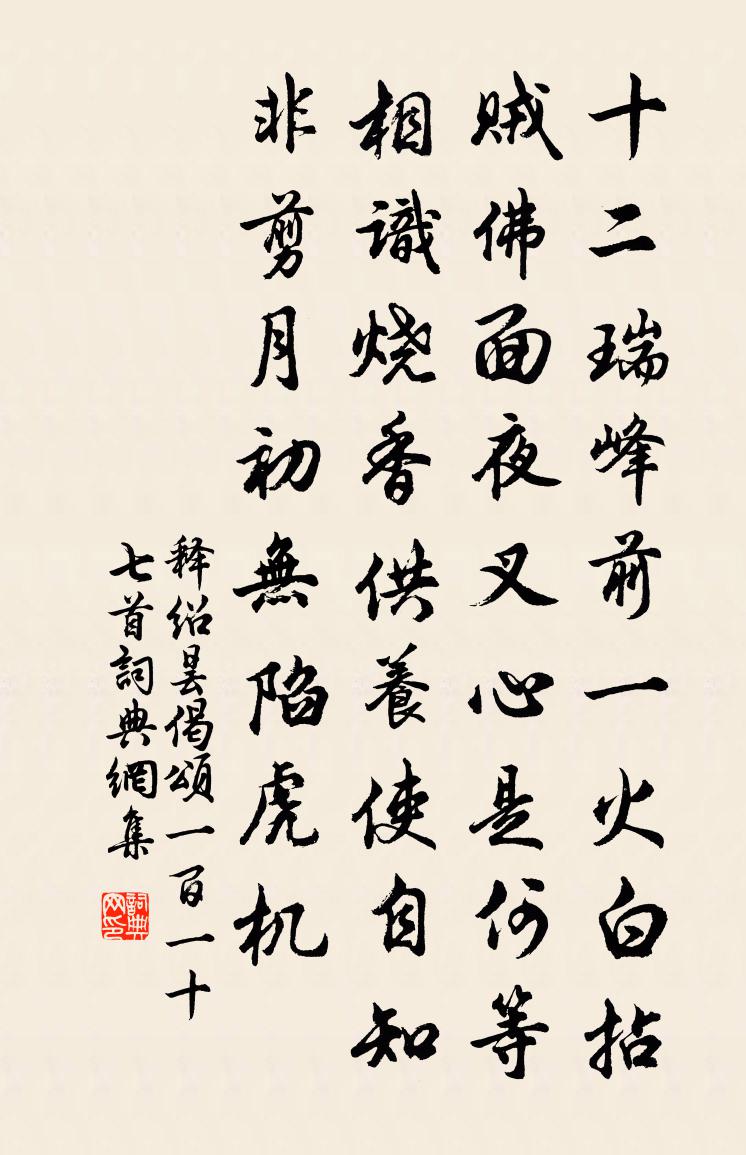 十二瑞峰前一火白拈
賊佛面夜叉心是何等
相識烧香供養使自知
非剪月初無陷虎机
释绍昙偈頌一百一十
七首詞典網集
詞典网印